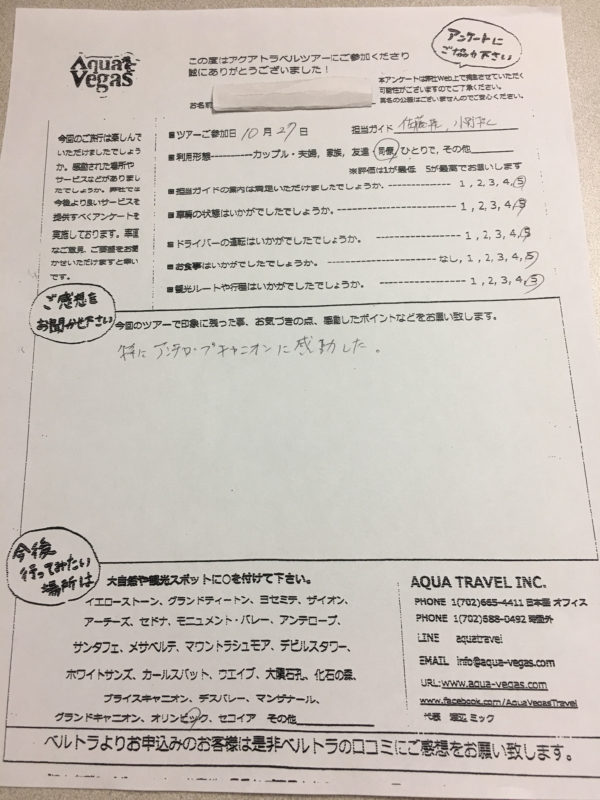 Aqua
Vegas
この度はアクアトラベルツアーにご参加くださり
誠にありがとうございました！
アンケートに
ご協力下さい
本アンケートは弊社Web上で掲載させていただく
可能性がございますのでご了承ください。
実名の公開はございませんのでご安心ください。
お名前
■ツアーご参加日 10月27日 担当ガイド
■利用形態----------カップル・夫婦，家族，友達，同僚，ひとりで，その他
※評価は1が最低 5が最高でお願いします
■担当ガイドの案内は満足いただけましたでしょうか。--------------- 1，2，3，4，5
■車輌の状態はいかがでしたでしょうか。--------------- 1，2，3，4，5
■ドライバーの運転はいかがでしたでしょうか。--------------- 1，2，3，4，5
■お食事はいかがでしたでしょうか。--------------- なし，1，2，3，4，5
■観光ルートや行程はいかがでしたでしょうか。--------------- 1，2，3，4，5
今回のご旅行は楽しんで
いただけましたでしょう
か。感動された場所や
サービスなどがありまし
たでしょうか。弊社では
今後より良いサービスを
提供すべくアンケートを
実施しております。率直
なご意見、ご要望をお聞
かせいただけますと幸い
です。
ご感想を
お聞かせ下さい
今回のツアーで印象に残った事、お気づきの点、感動したポイントなどをお願い致します。
特にアンテロープキャニオンに感動した。
今後
行ってみたい
場所は
大自然や観光スポットに○を付けて下さい。
イエローストーン、グランドティートン、ヨセミテ、ザイオン、
アーチーズ、セドナ、モニュメント・バレー、アンテロープ、
サンタフェ、メサベルデ、マウントラシュモア、デビルスタワー、
ホワイトサンズ、カールスバット、ウエイブ、大隕石孔、化石の森、
ブライスキャニオン、デスバレー、マンザナール、
グランドキャニオン、オリンピック、セコイア その他
AQUA TRAVEL INC.
PHONE 1(702)665-4411 日本語 オフィス
PHONE 1(702)588-0492 時間外
LINE aquatravel
EMAIL info@aqua-vegas.com
URL:www.aqua-vegas.com
www.facebook.com/AquaVegasTravel
代表 渡辺 ミック
ベルトラよりお申込みのお客様は是非ベルトラの口コミにご感想をお願い致します。